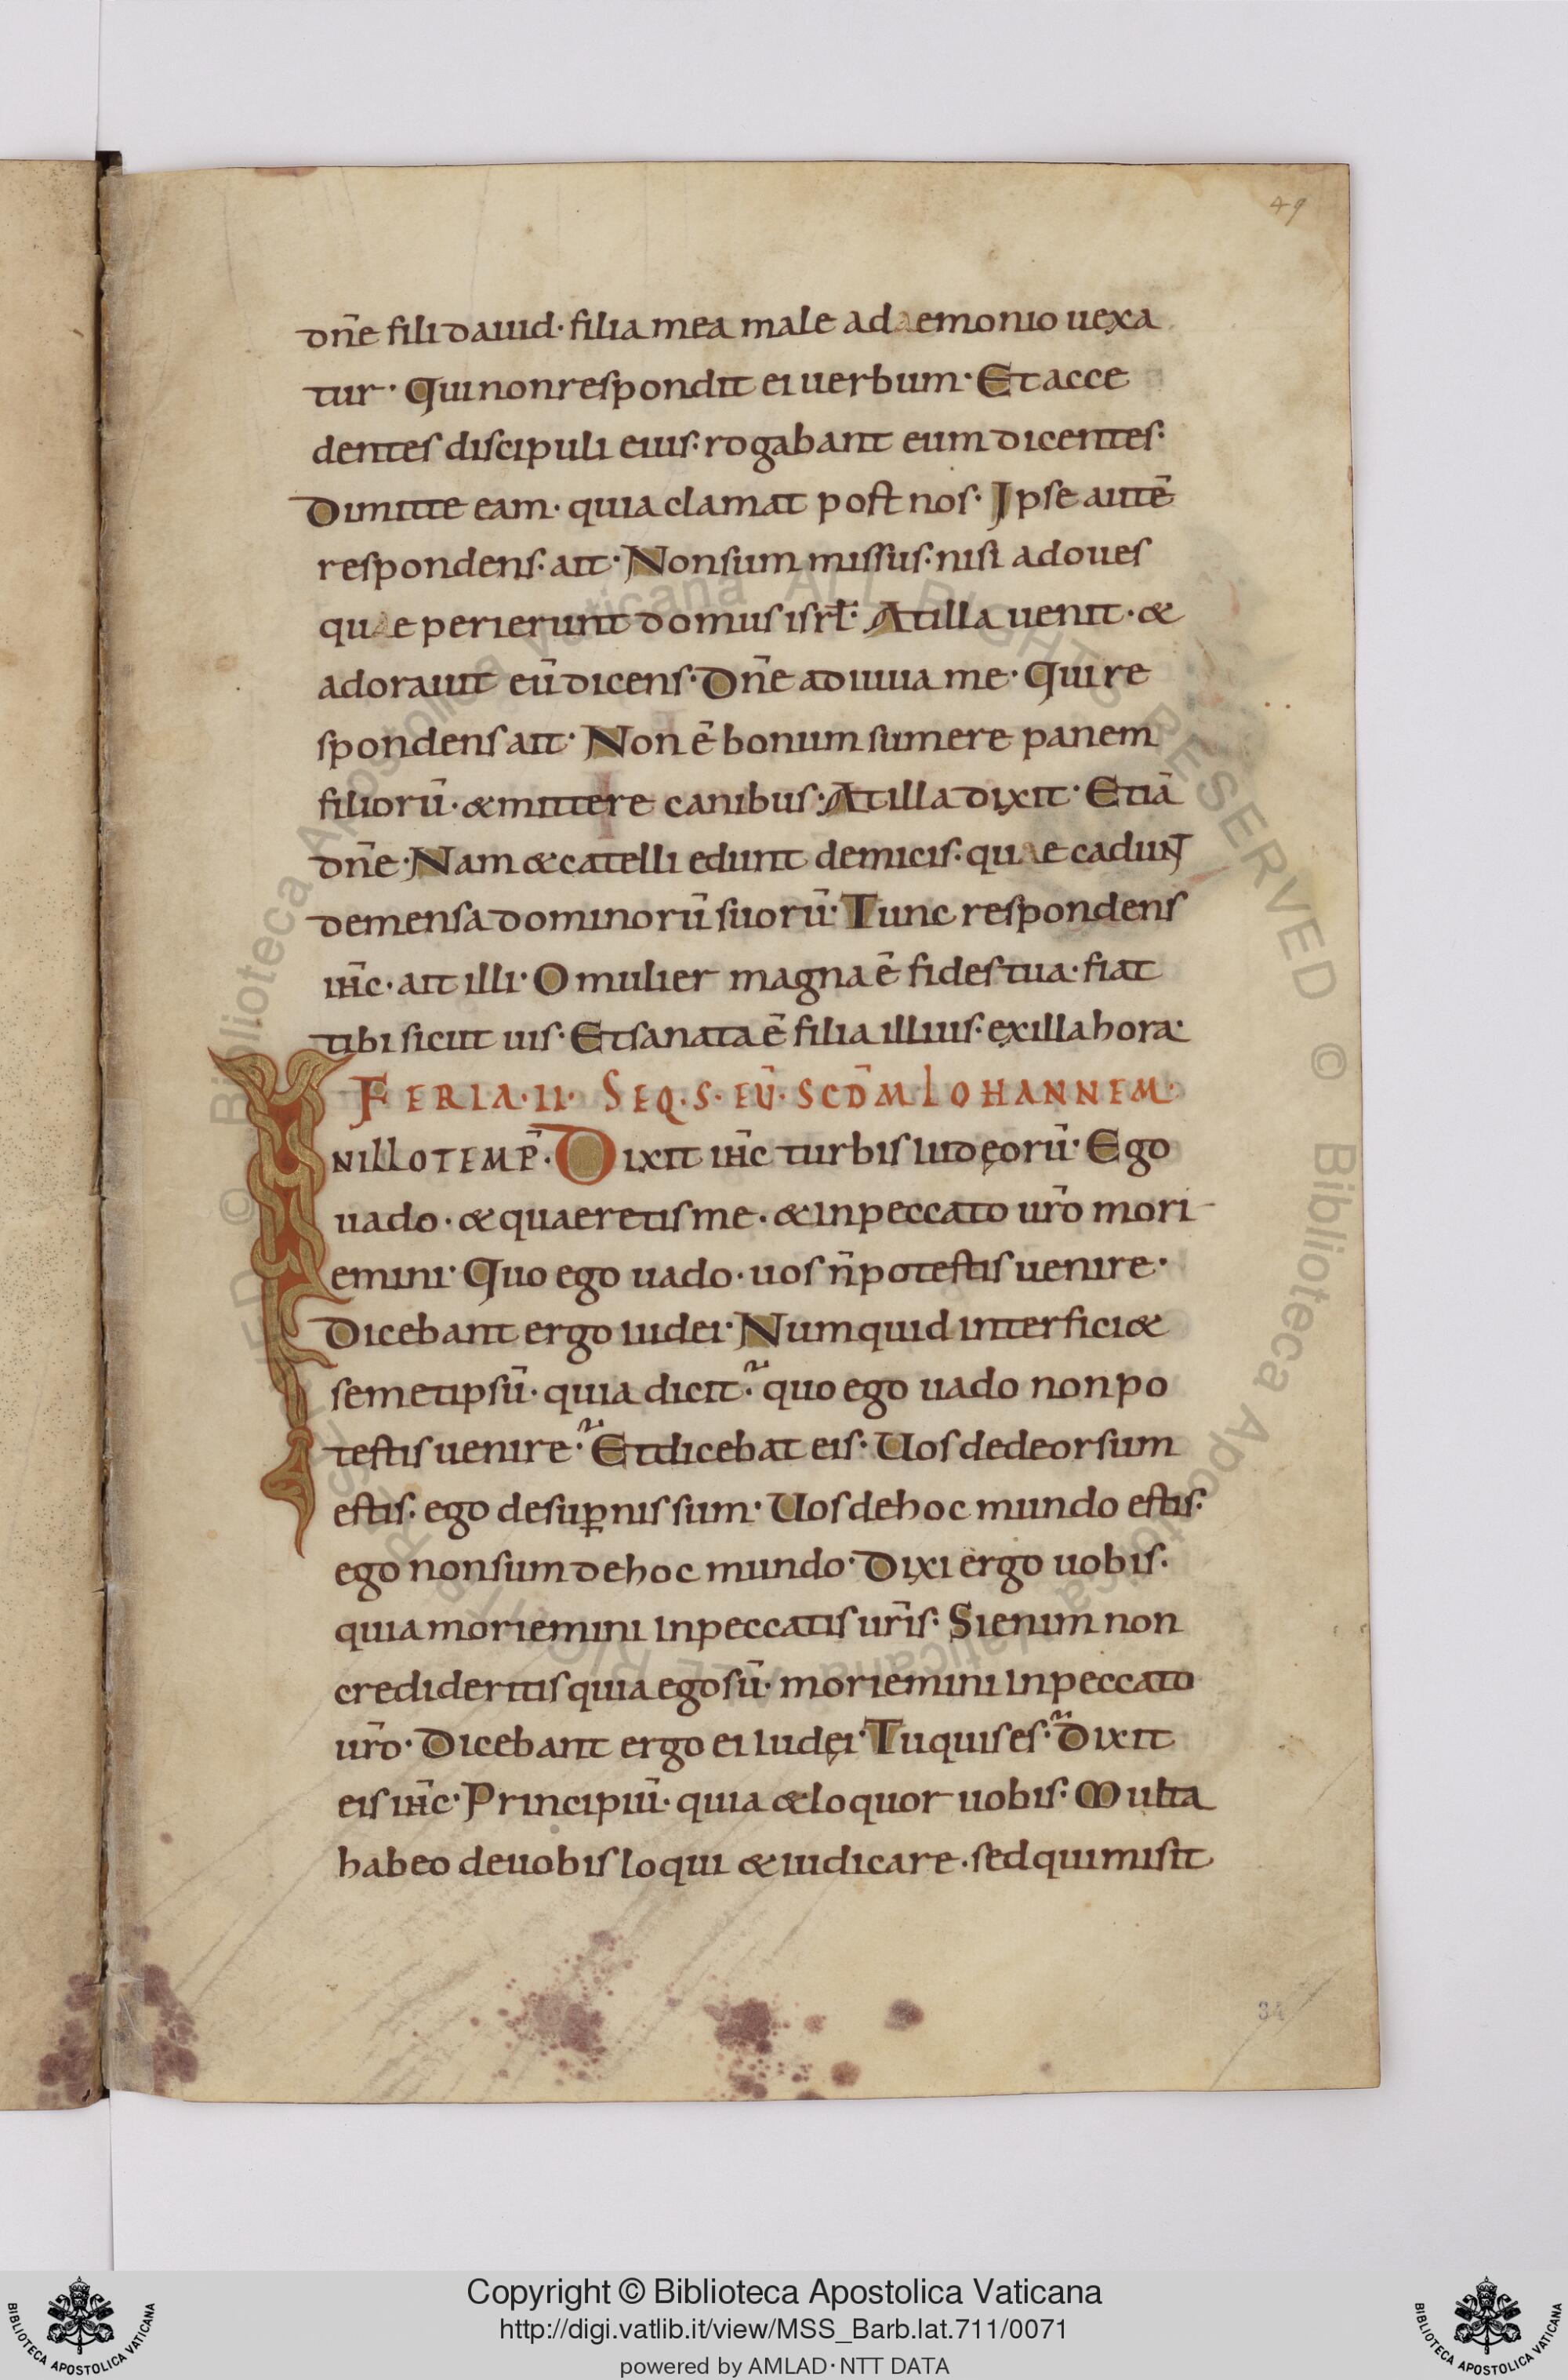 49
dn̄e fili dauid· filia mea male a daemonio uexa
tur· Qui non respondit ei uerbum· Et acce
dentes discipuli eius· rogabant eum dicentes·
Dimitte eam· quia clamat post nos· Ipse autē
respondens· ait· Non sum missus· nisi ad oues
quae perierunt domus isrł· At illa uenit· &
adorauit eū dicens· Dn̄e adiuua me· Qui re
spondens ait· Non ē bonum sumere panem
filiorū· & mittere canibus· At illa dixit· Etiā
dn̄e· Nam & catelli edunt de micis· quae cadunt
de mensa dominorū suorū· Tunc respondens
ih̄c· ait illi· O mulier magna ē fides tua· fiat
tibi sicut uis· Et sanata ē filia illius· ex illa hora·
FERIA·II· SEQ·S·EŪ·SCD̄M IOHANNEM·
IN ILLO TEMP̄· Dixit ih̄c turbis iudęorū· Ego
uado· & quaeretis me· & in peccato ur̄o mori
emini· Quo ego uado· uos n̄ potestis uenire·
Dicebant ergo iudei· Numquid interfici&
semetipsū· quia dicit· quo ego uado non po
testis uenire· Et dicebat eis· Uos de deorsum
estis· ego de suꝑnis sum· Uos de hoc mundo estis·
ego non sum de hoc mundo· Dixi ergo uobis·
quia moriemini in peccatis ur̄is· Si enim non
credideritis quia ego sū· moriemini in peccato
ur̄o· Dicebant ergo ei iudęi· Tu quis es· Dixit
eis ih̄c· Principiū· quia & loquor uobis· Multa
habeo de uobis loqui & iudicare· sed qui misit
34
© Biblioteca Apostolica Vaticana ALL RIGHTS RESERVED
Copyright © Biblioteca Apostolica Vaticana
http://digi.vatlib.it/view/MSS_Barb.lat.711/0071
powered by AMLAD·NTT DATA
BIBLIOTECA APOSTOLICA VATICANA
BIBLIOTECA APOSTOLICA VATICANA